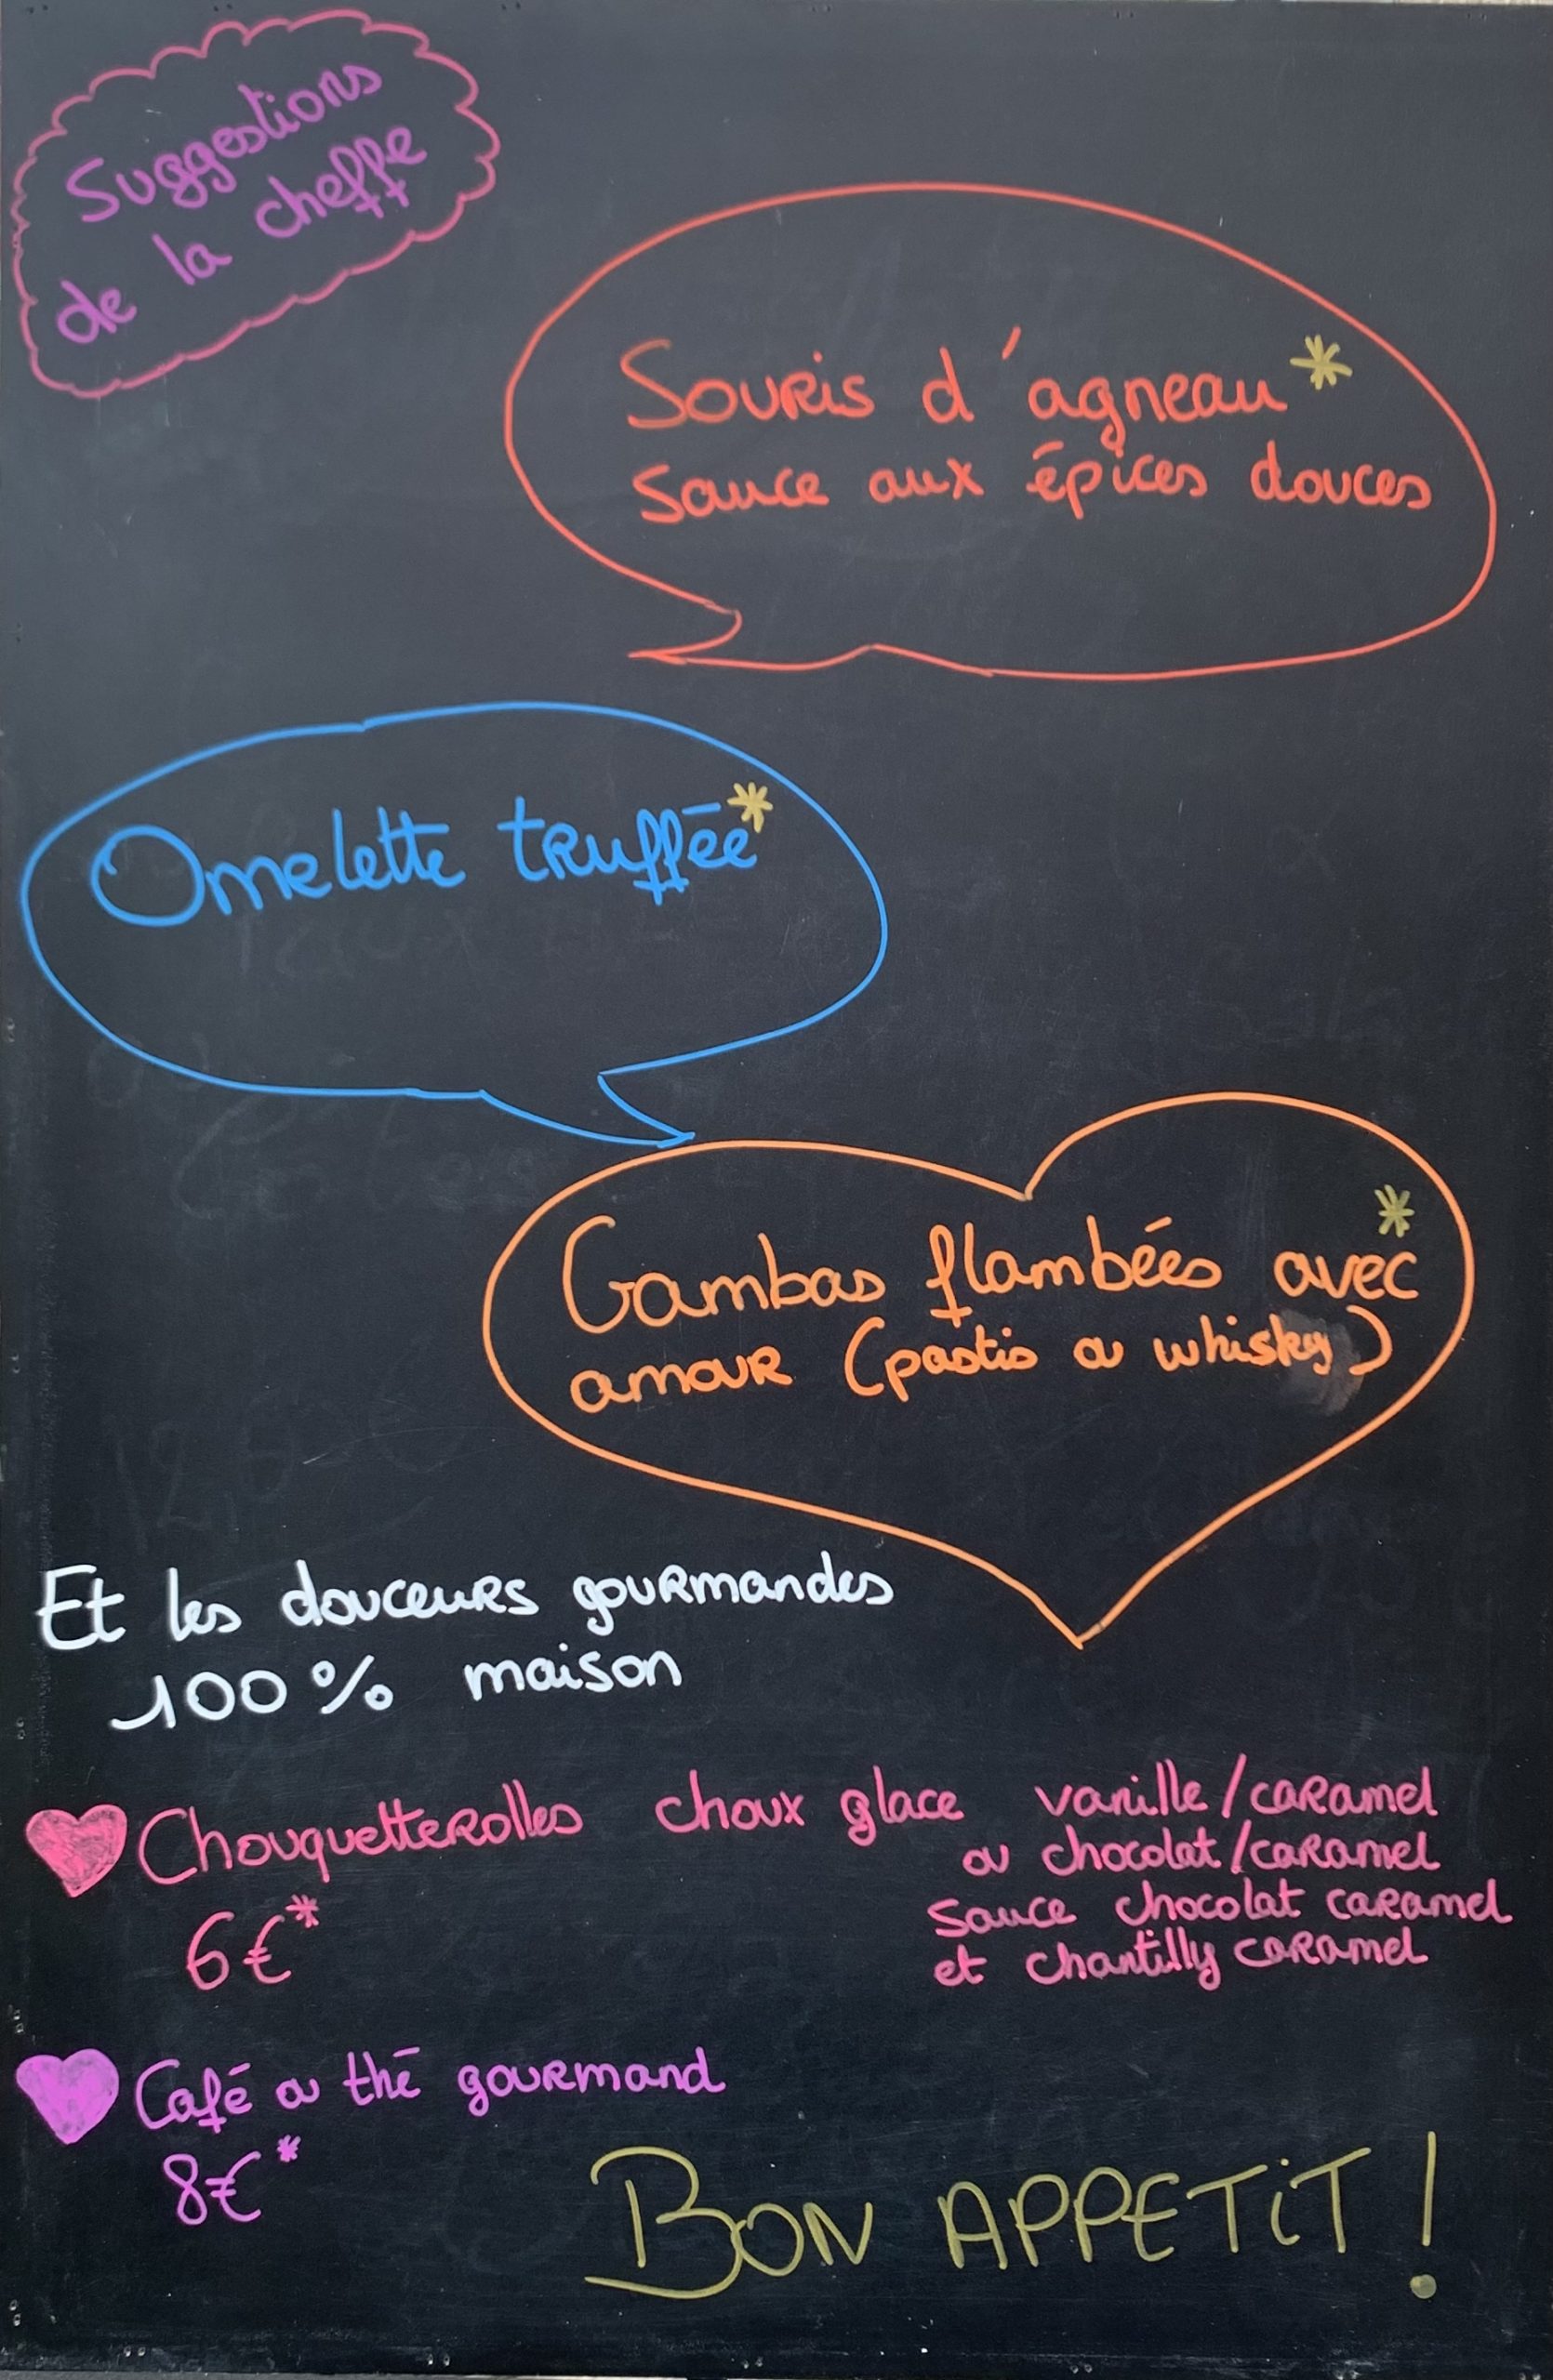 Suggestions
de la cheffe
Souris d'agneau*
sauce aux épices douces
Omelette truffée*
*
Gambas flambées avec
amour (pastis ou whisky)
Et les douceurs gourmandes
100% maison
Chouquetterolles choux glace vanille/caramel
ou chocolat/caramel
sauce chocolat caramel
et chantilly caramel
6€*
Café ou thé gourmand
8€*
BON APPETiT !